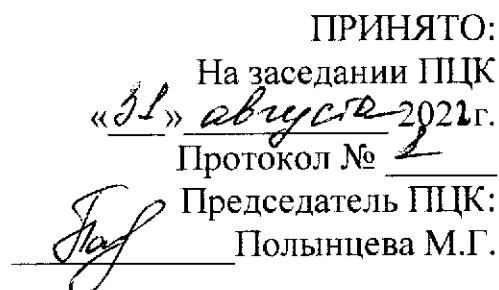 ПРИНЯТО:
На заседании ПЦК
«31» августа 2021г.
Протокол № 1
Председатель ПЦК:
Полынцева М.Г.